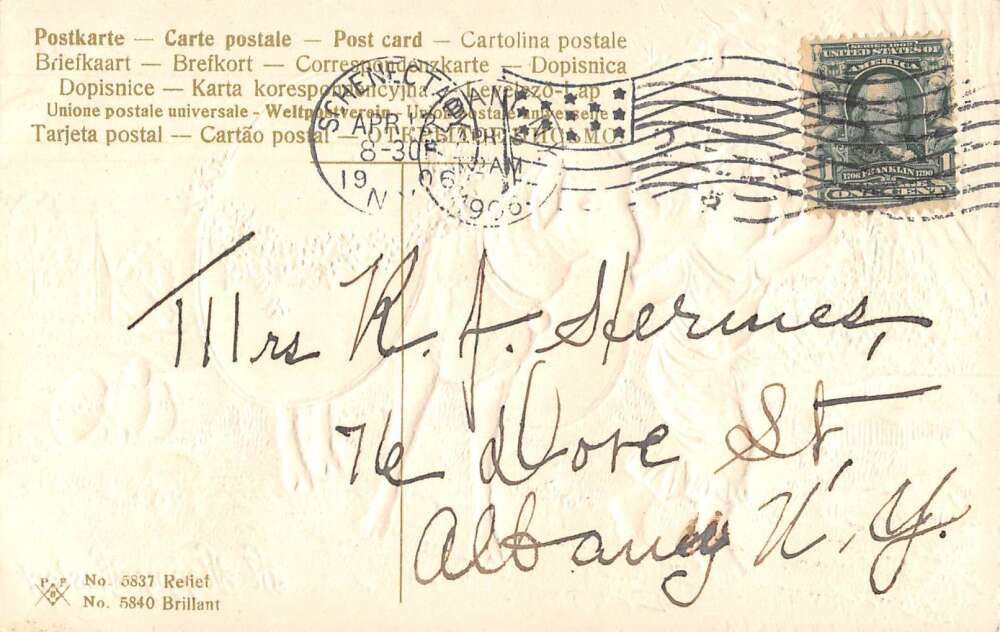 Postkarte — Carte postale — Post card — Cartolina postale
Briefkaart — Brefkort — Correspondenzkarte — Dopisnica
Dopisnice — Karta korespondencyjna — Levelező-Lap
Unione postale universale - Weltpostverein - Union postale universelle
Tarjeta postal — Cartão postal —
SCHENECTADY
APR
8-30P
1906
N
AM
1906
SERIES 1902
UNITED STATES OF
AMERICA
1706 FRANKLIN 1790
1 1
ONE CENT
Mrs R. J. Hermes,
76 Dove St,
Albany N.Y.
P. P.
B
No. 5837 Relief
No. 5840 Brillant